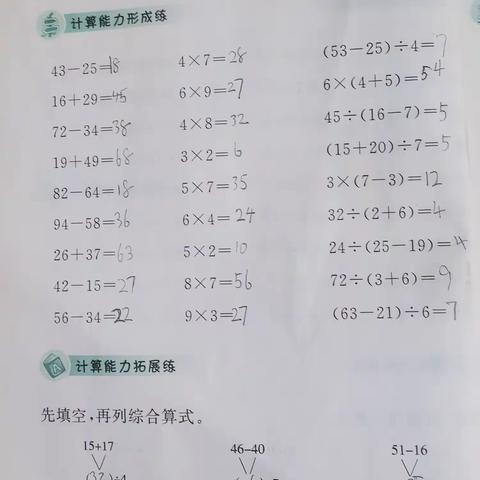 计算能力形成练
43－25=18
4×7=28
(53－25)÷4=7
16＋29=45
6×9=27
6×(4＋5)=54
72－34=38
4×8=32
45÷(16－7)=5
19＋49=68
3×2=6
(15＋20)÷7=5
82－64=18
5×7=35
3×(7－3)=12
94－58=36
6×4=24
32÷(2＋6)=4
26＋37=63
5×2=10
24÷(25－19)=4
42－15=27
8×7=56
72÷(3＋6)=9
56－34=22
9×3=27
(63－21)÷6=7
计算能力拓展练
先填空,再列综合算式。
15+17
46-40
51-16